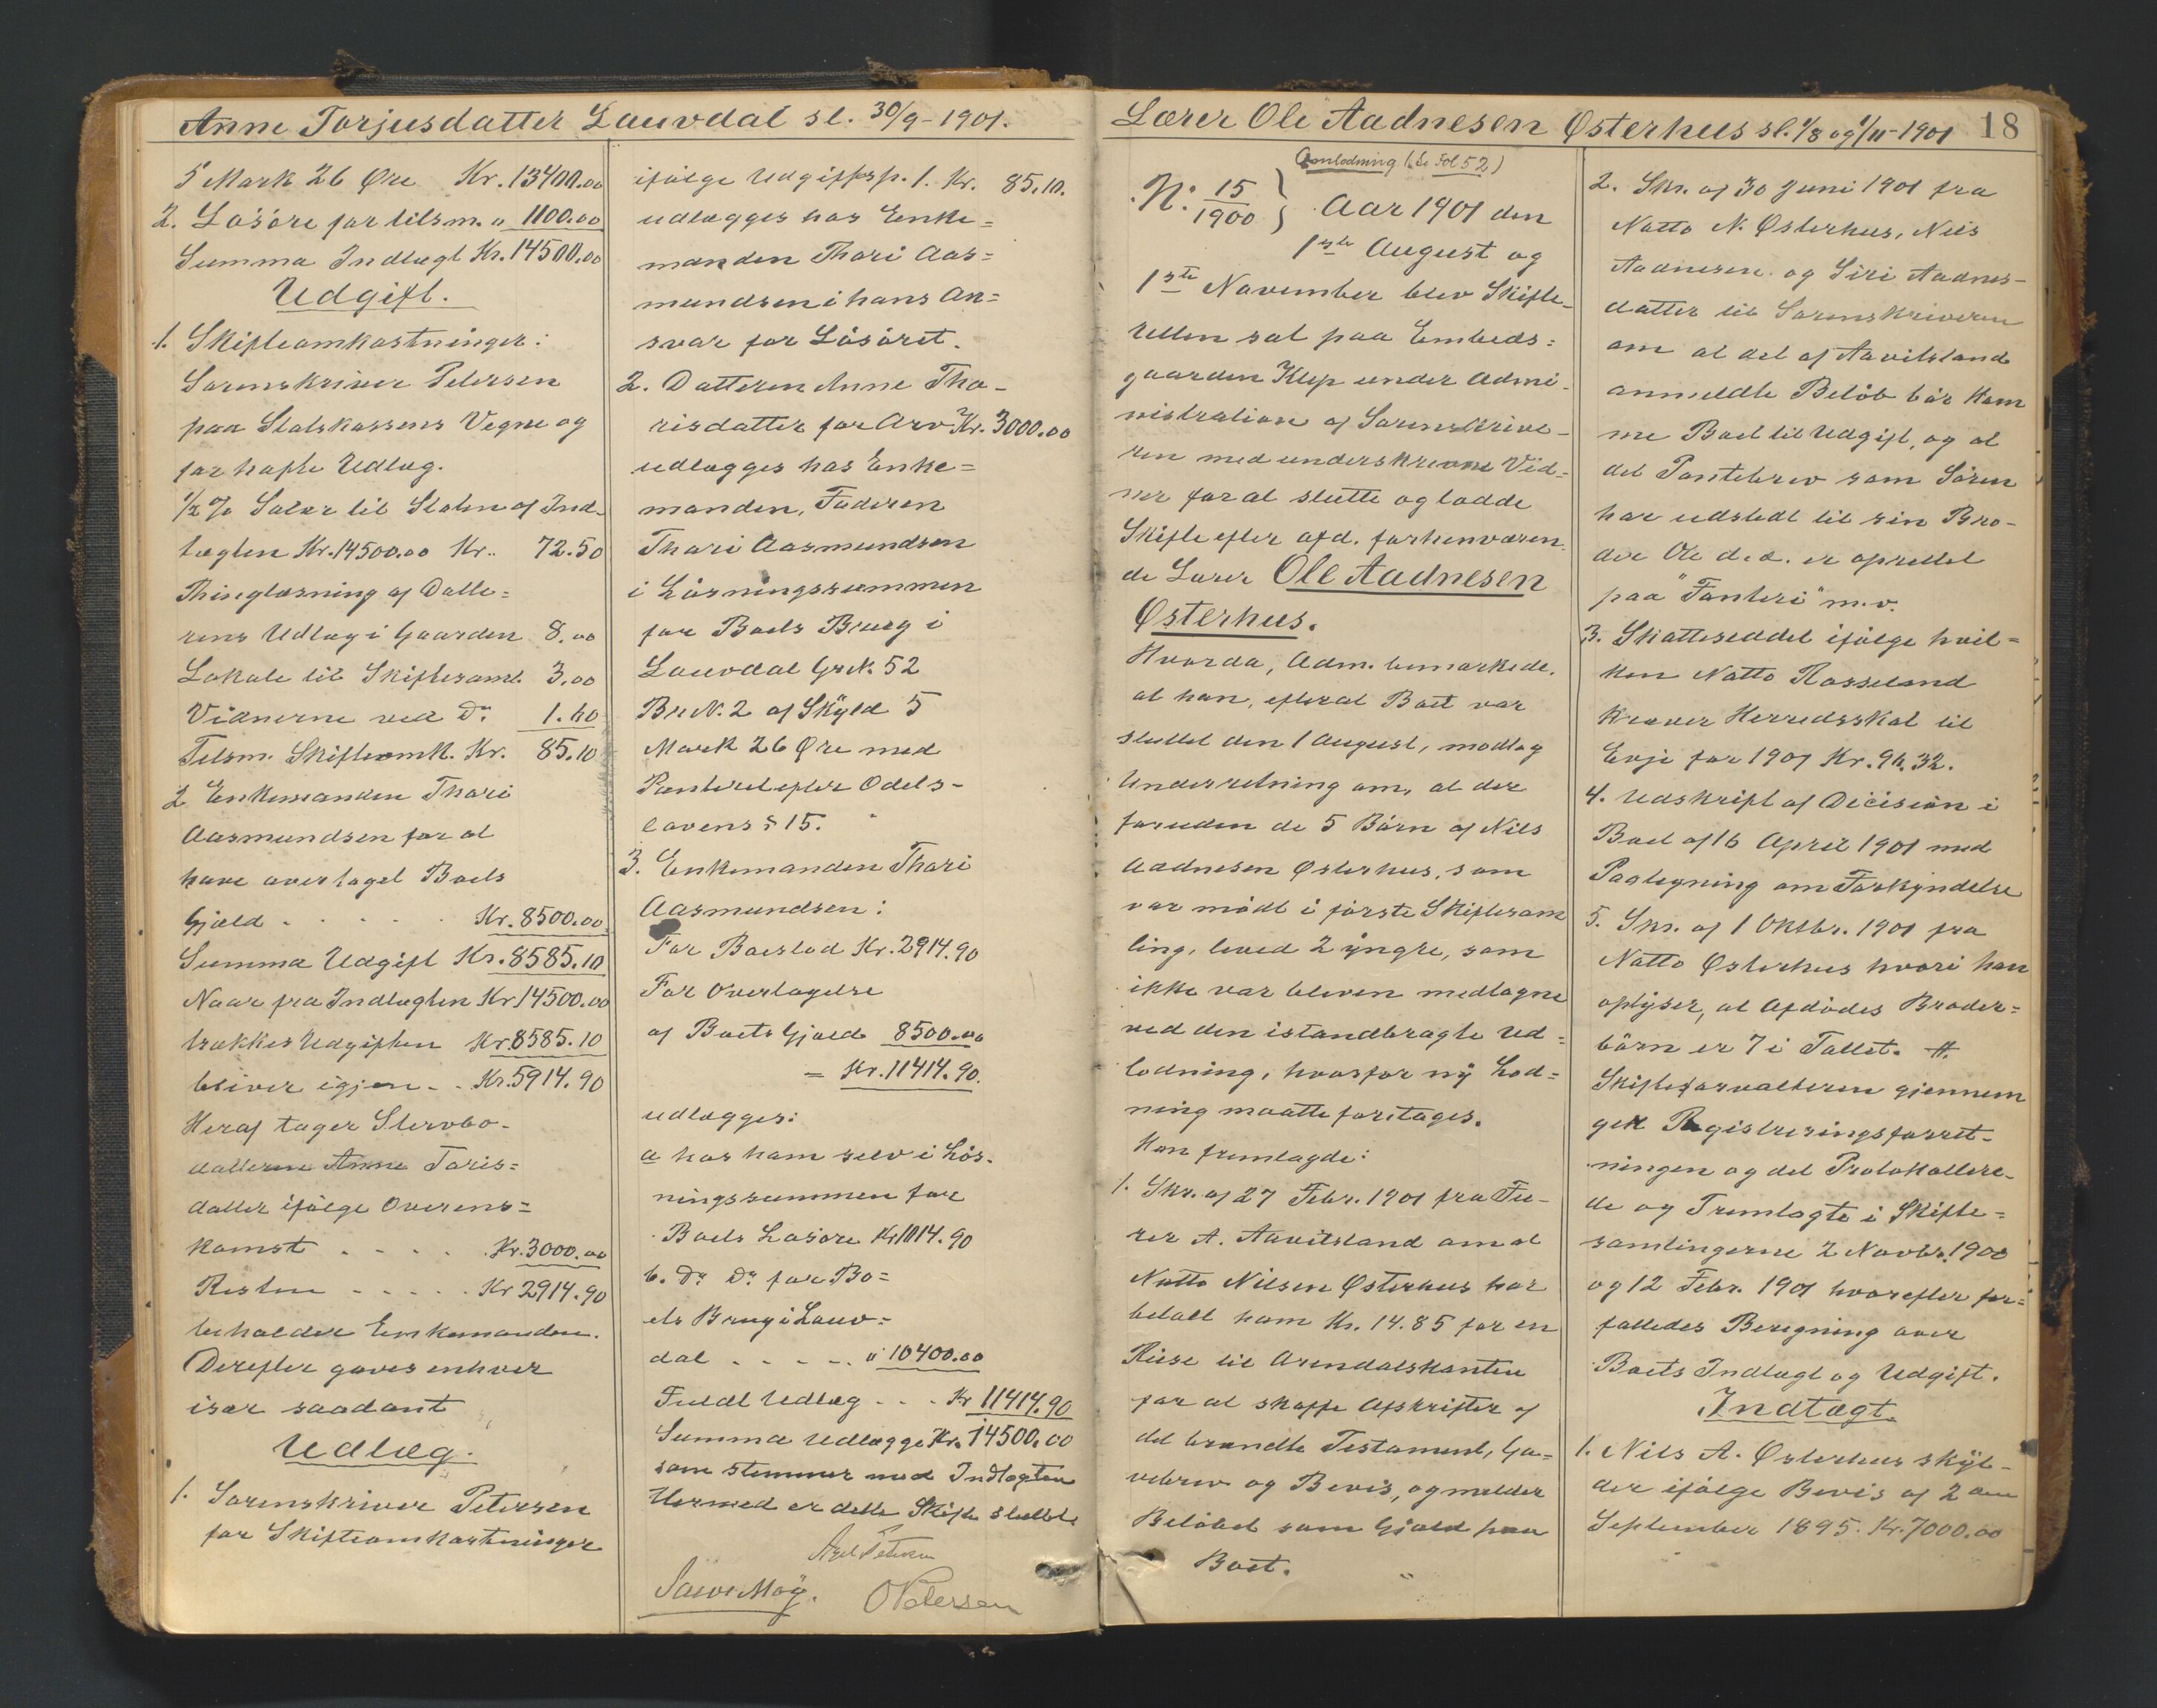 Anne Torjusdatter Lauvdal sl. 30/9-1901.
5 Mark 26 Øre Kr. 13400.00
2. Løsøre for tilsm. " 1100.00
Summa Indtægt Kr. 14500.00
Udgift.
1. Skifteomkostninger:
Sorenskriver Petersen
paa Statskassens Vegne og
for hafte Udlæg.
1/2 % Salær til Staten af Ind-
tægten Kr. 14500.00 Kr. 72.50
Thinglæsning af Datte=
rens Udlæg i Gaarden 8.00
Lokale til Skiftesaml. 3.00
Vidnerne ved Do 1.60
Tilsm. Skifteomk. Kr. 85.10
2 Enkemanden Thori
Aasmundsen for at
have overtaget Boets
Gjæld . . . . . Kr. 8500.00
Summa Udgift Kr. 8585.10
Naar fra Indtægten Kr 14500.00
trækkes Udgiften Kr 8585.10
bliver igjen . . Kr. 5914.90
Heraf tager Stervbo-
datteren Anne Toris=
datter ifølge Overens=
komst . . . . . Kr. 3000.00
Resten . . . . . Kr 2914.90
beholder Enkemanden.
Derefter gaves enhver
især saadant
Udlæg.
1. Sorenskriver Petersen
for Skifteomkostninger
ifølge Udgiftsp. 1. Kr. 85.10.
udlægges hos Enke=
manden Thori Aas=
mundsen i hans An=
svar for Løsøret.
2. Datteren Anne Tho-
risdatter for Arv Kr. 3000.00
udlægges hos Enke=
manden, Faderen
Thori Aasmundsen
i Løsningssummen
for Boets Brug i
Lauvdal GrN. 52
BrN. 2 af Skyld 5
Mark 26 Øre med
Panteret efter Odels-
lovens § 15.
3. Enkemanden Thori
Aasmundsen:
For Boeslod Kr. 2914.90
For Overtagelse
af Boets Gjæld 8500.00
= Kr. 11414.90.
udlægges:
a hos ham selv i Løs-
ningssummen for
Boets Løsøre Kr 1014.90
b. Do Do for Bo=
ets Brug i Lauv=
dal . . . . . " 10400.00
Fuldt Udlæg . . . Kr 11414.90
Summa Udlægge Kr. 14500.00
som stemmer med Indtægten
Hermed er dette Skifte sluttet
Axel Petersen
O Petersen
Lærer Ole Aadnesen Østerhus sl. 1/8 og 1/11-1901 18
(Se Fol 52)
No. 15/1900 } Aar 1901 den
1ste August og
1ste November blev Skifte-
retten sat paa Embeds=
gaarden Klep under Admi-
nistration af Sorenskrive-
ren med underskrevne Vid=
ner for at slutte og lodde
Skifte efter afd. forhenværen
de Lærer Ole Aadnesen
Østerhus.
Hvorda, Adm. bemærkede.
at han, efterat Boet var
sluttet den 1 August, modtog
Underretning om, at der
foruden de 5 Børn af Nils
Aadnesen Østerhus, som
var mødt i første Skiftesam
ling, leved 2 yngre, som
ikke var bleven medtagne
ved den istandbragte Ud=
lodning, hvorfor ny Lod=
ning maatte foretages.
Han fremlagde:
1. Skr. af 27 Febr. 1901 fra Fu-
rer A. Aavitsland om at
Natto Nilsen Østerhus har
betalt ham Kr. 14.85 for en
Reise til Arendalskanten
for at skaffe Afskrifter af
det brændte Testament, Ga=
vebrev og Bevis, og melder
Beløbet som Gjæld paa
Boet.
2. Skr. af 30 Juni 1901 fra
Natto N. Østerhus, Nils
Aadnesen og Siri Aadnes-
datter til Sorenskriveren
om at det af Aavitsland
anmeldte Beløb bør kom
me Boet til Udgift, og at
det Pantebrev som Søren
har udstedt til sin Bro-
der Ole d.æ. er oprettet
paa "Fanteri" m.v.
3. Skatteseddel ifølge hvil=
ken Natto Rosseland
kræver Herredsskat til
Evje for 1901 Kr. 96.32.
4. Udskrift af Decision i
Boet af 16 April 1901 med
Paategning om Forkyndelse
5. Skr. af 1 Oktbr. 1901 fra
Natto Østerhus hvori han
oplyser, at Afdødes Broder=
børn er 7 i Tallet.
Skifteforvalteren gjennem
gik Registreringsforret-
ningen og det Protokollere-
de og Fremlagte i Skifte=
samlingerne 2 Novbr. 1900
og 12 Febr. 1901 hvorefter for=
fattedes Beregning over
Boets Indtægt og Udgift.
Indtægt.
1. Nils A. Østerhus skyl-
der ifølge Bevis af 2den
September 1895. Kr. 7000.00